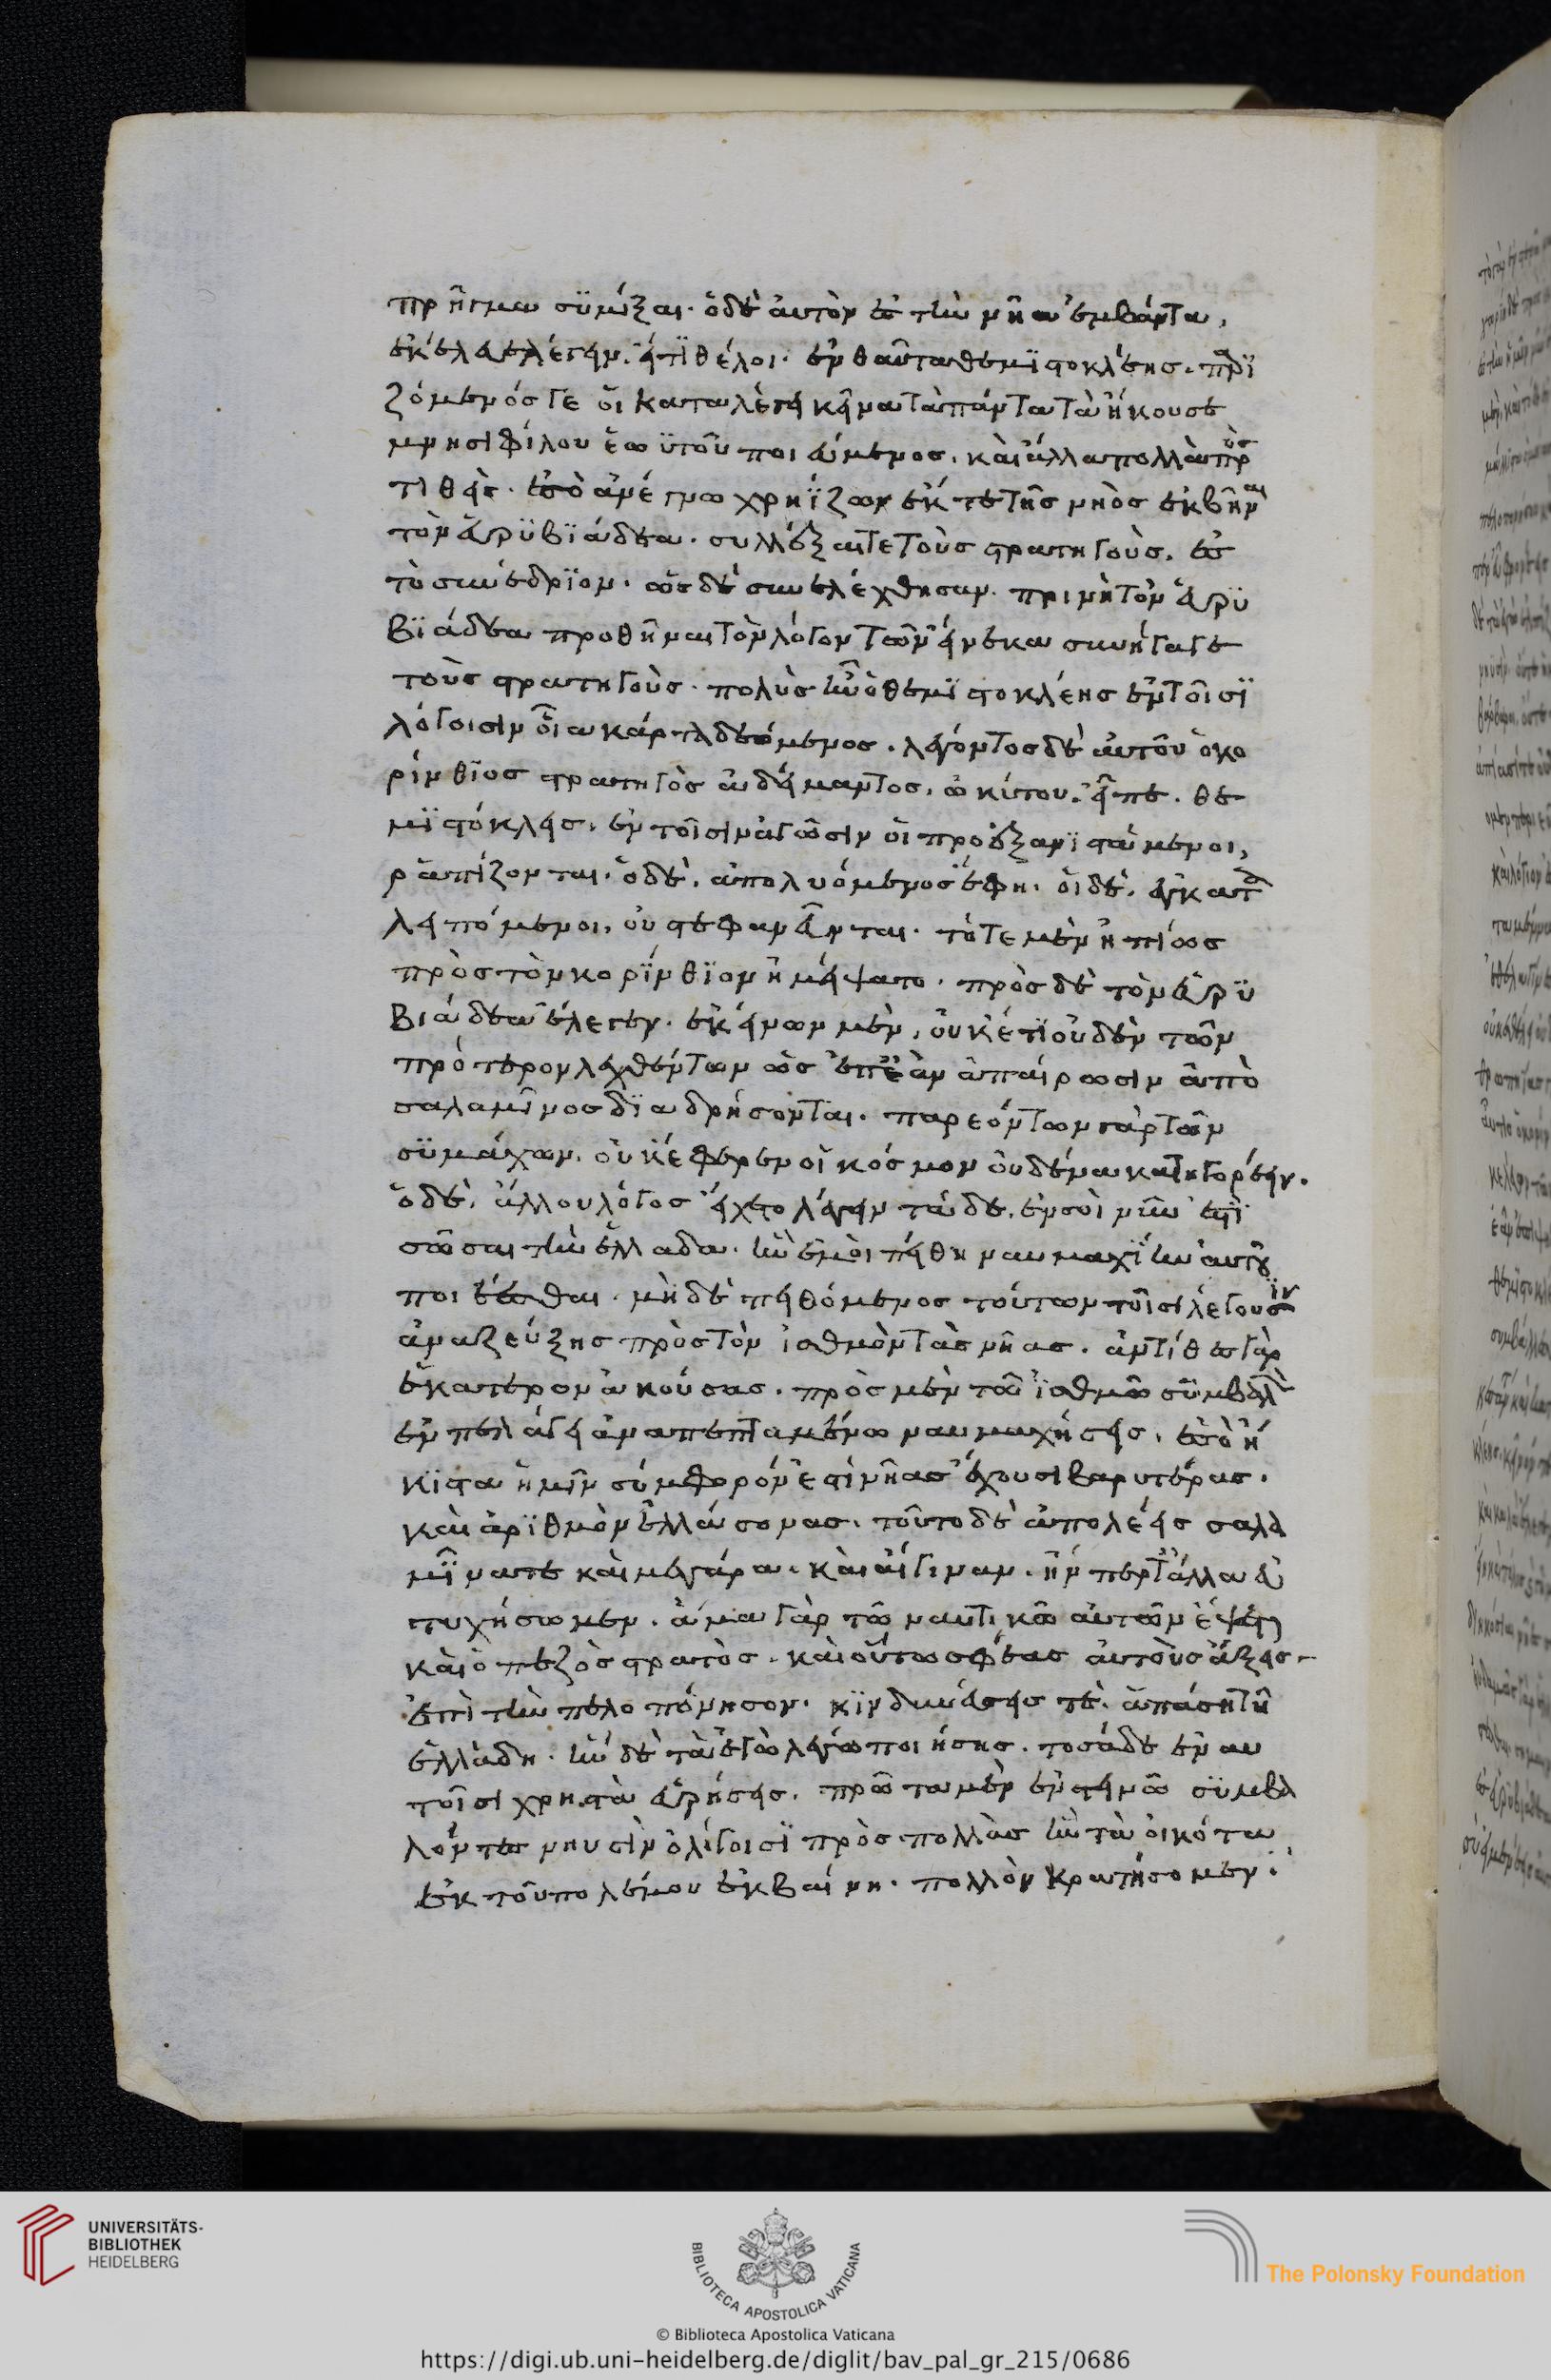 πρῆγμα συμίξαι· ὁ δὲ αὐτὸν ἐς τὴν νῆα ἐμβάντα,
ἐκέλευε λέγειν εἴ τϊ θέλοι· ἐνθαῦτα θεμϊστοκλέης παρϊ
ζόμενός τε οἱ καταλέγει κεῖνα τὰ πάντα τὰ ἤκουσε
μνησιφίλου ἑωϋτοῦ ποιεύμενος. καὶ ἄλλα πολλὰ προσ
τιθεὶς· ἐς ὃ ἀνέγνω χρηΐζων ἔκ τε τῆς νηὸς ἐκβῆναι
τὸν εὐρϋβϊάδεα. συλλέξαι τε τοὺς στρατηγοὺς. ἐς
τὸ συνέδρϊον. ὡς δὲ συνελέχθησαν. πρινὴ τὸν εὐρϋ
βϊάδεα προθεῖναι τὸν λόγον τῶν εἵνεκα συνήγαγε
τοὺς στρατηγοὺς. πολὺς ἦν ὁ θεμϊστοκλέης ἐν τοῖσϊ
λόγοισιν οἷα κάρτα δεόμενος. λέγοντος δὲ αὐτοῦ ὁ κο
ρίνθϊος στρατηγὸς ἀδείμαντος. εἶπε. θε
μϊστόκλεις. ἐν τοῖσιν ἀγῶσιν οἱ προεξανϊστάμενοι,
ῥαπίζονται. ὁ δὲ. ἀπολυόμενος ἔφη. οἱ δὲ. ἐγκατα
λειπόμενοι. οὐ στεφανεῦνται. τότε μὲν ἠπίως
πρὸς τὸν κορϊνθϊον ἠμείψατο. πρὸς δὲ τὸν εὐρϋ
βιάδεα ἔλεγεν. ἐκείνων μὲν, οὐκέτϊ οὐδὲν τῶν
πρότερον λεχθέντων ὡς ἐπεὰν ἀπαίρωσιν ἀπὸ
σαλαμῖνος δϊαδρήσονται. παρεόντων γὰρ τῶν
σϋμάχων. οὐκ ἔφερεν οἱ κόσμον οὐδένα κατηγορέειν.
ὁ δὲ, ἄλλου λόγος εἴχετο λέγειν τάδε, ἐν σοὶ νῦν ἐστϊ
σῶσαι τὴν ἑλλάδα. ἢν ἐμοὶ πείθη ναυμαχΐην αὐτοῦ
ποιέεσθαι. μὴ δὲ πειθόμενος τούτων τοῖσι λέγουσϊν
ἀναζεύξης πρὸς τὸν ἰσθμὸν τὰς νῆας. ἀντίθες γὰρ
ἑκάτερον ἀκούσας. πρὸς μὲν τῶ ἰσθμῶ συμβάλλ
ἐν πελάγει ἀναπεπταμένω ναυμαχήσεις. ἐς ὃ ἥ
κϊστα ἡμῖν σύμφορόν ἐστι νῆας ἔχουσι βαρυτέρας.
καὶ ἀρϊθμὸν ἐλλάσονας. τοῦτο δὲ ἀπολέεις σαλα
μῖνα τε καὶ μέγαρα. καὶ αἴγιναν. ἤν περ τἄλλα εὐ
τυχήσωμεν. ἅμα γὰρ τῶ ναυτικῶ αὐτῶν ἕψεται
καὶ ὁ πεζὸς στρατὸς. καὶ οὕτω σφέας αὐτοὺς ἄξεις
ἐπὶ τὴν πελοπόνησον. κϊνδυνεύσεις τὲ. ἁπάση τῆ
ἑλλάδη. ἢν δὲ τὰ ἐγὼ λέγω ποιήσης. τοσάδε ἐν αυ
τοῖσι χρηστὰ εὑρήσεις. πρῶτα μὲν ἐν στεινῶ σϋμβα
λόντες νηυσὶν ὀλίγοισϊ πρὸς πολλὰς ἢν τὰ οἰκότα
ἐκ τοῦ πολέμου ἐκβαίνη. πολλὸν κρατήσομεν·
UNIVERSITÄTS-
BIBLIOTHEK
HEIDELBERG
BIBLIOTECA APOSTOLICA VATICANA
The Polonsky Foundation
© Biblioteca Apostolica Vaticana
https://digi.ub.uni-heidelberg.de/diglit/bav_pal_gr_215/0686